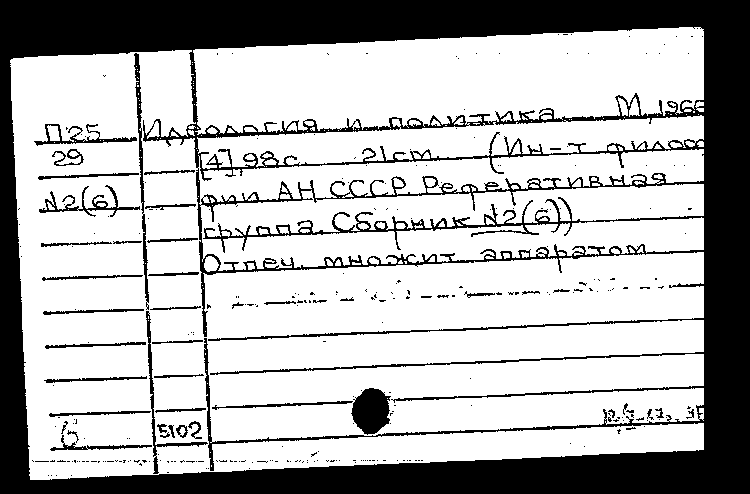 П25 Идеология и политика. М, 1966
29 [4], 98с. 21см. (Ин-т филосо
№2(6) фии АН СССР. Реферативная
группа. Сборник №2(6)).
Отпеч. множит. аппаратом
6 5102